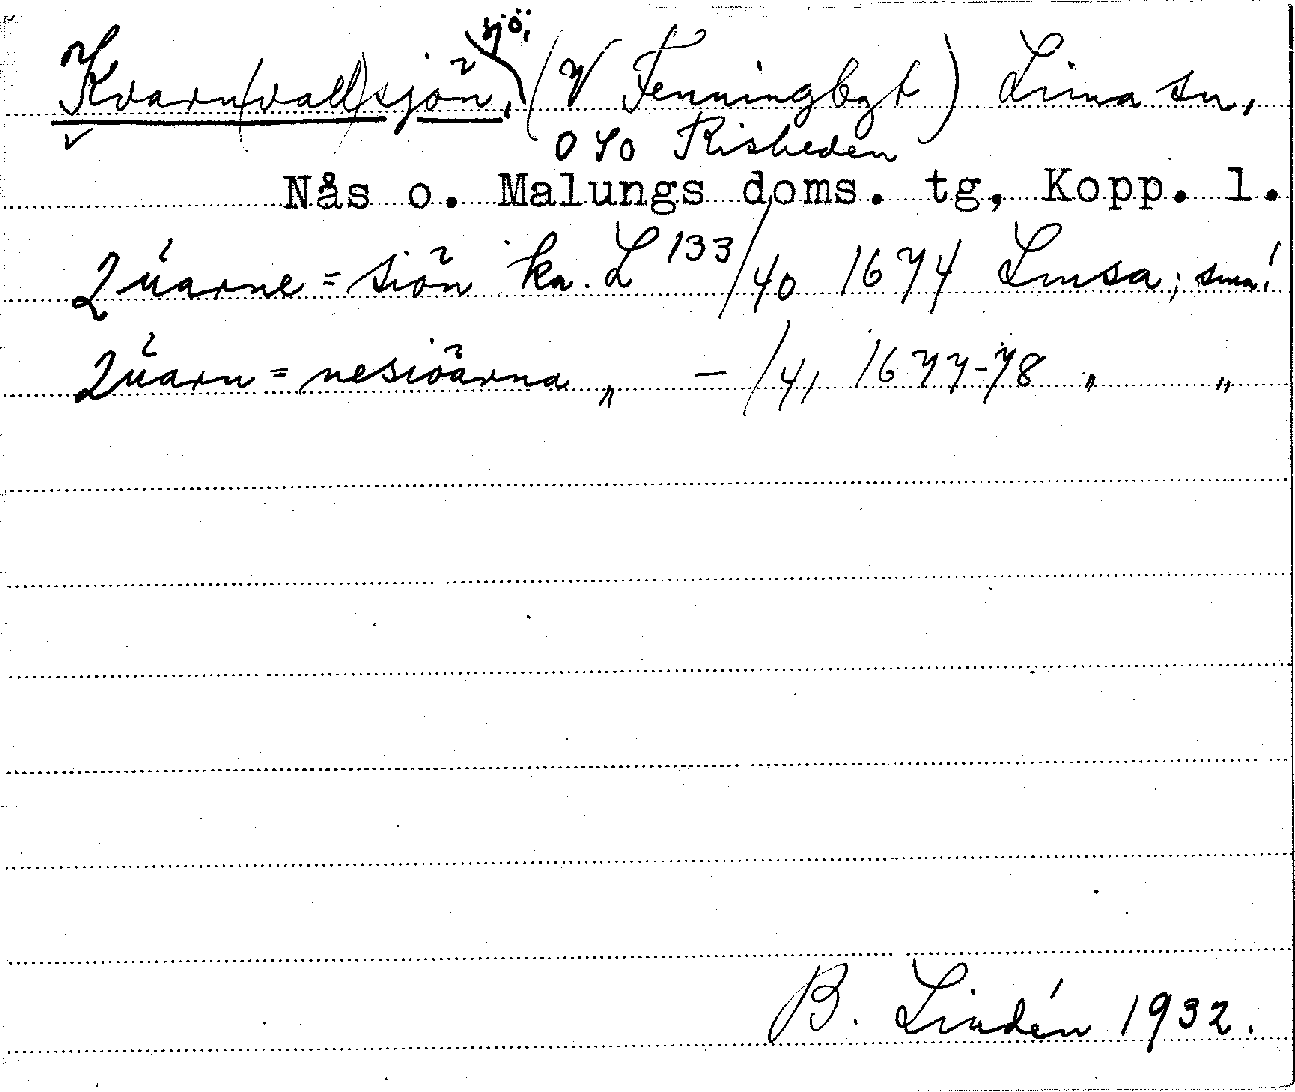 sjö,
Kvarn(vall)sjön, (V Fenningbgt) Lima sn,
O so Risheden
Nås o. Malungs doms. tg, Kopp. l.
Qúarne=siön ka. L 133/40 1674 Limsa; sma!
Qúarn=nesiöarna „ – /41 1677-78 „ „
B. Lindén 1932.